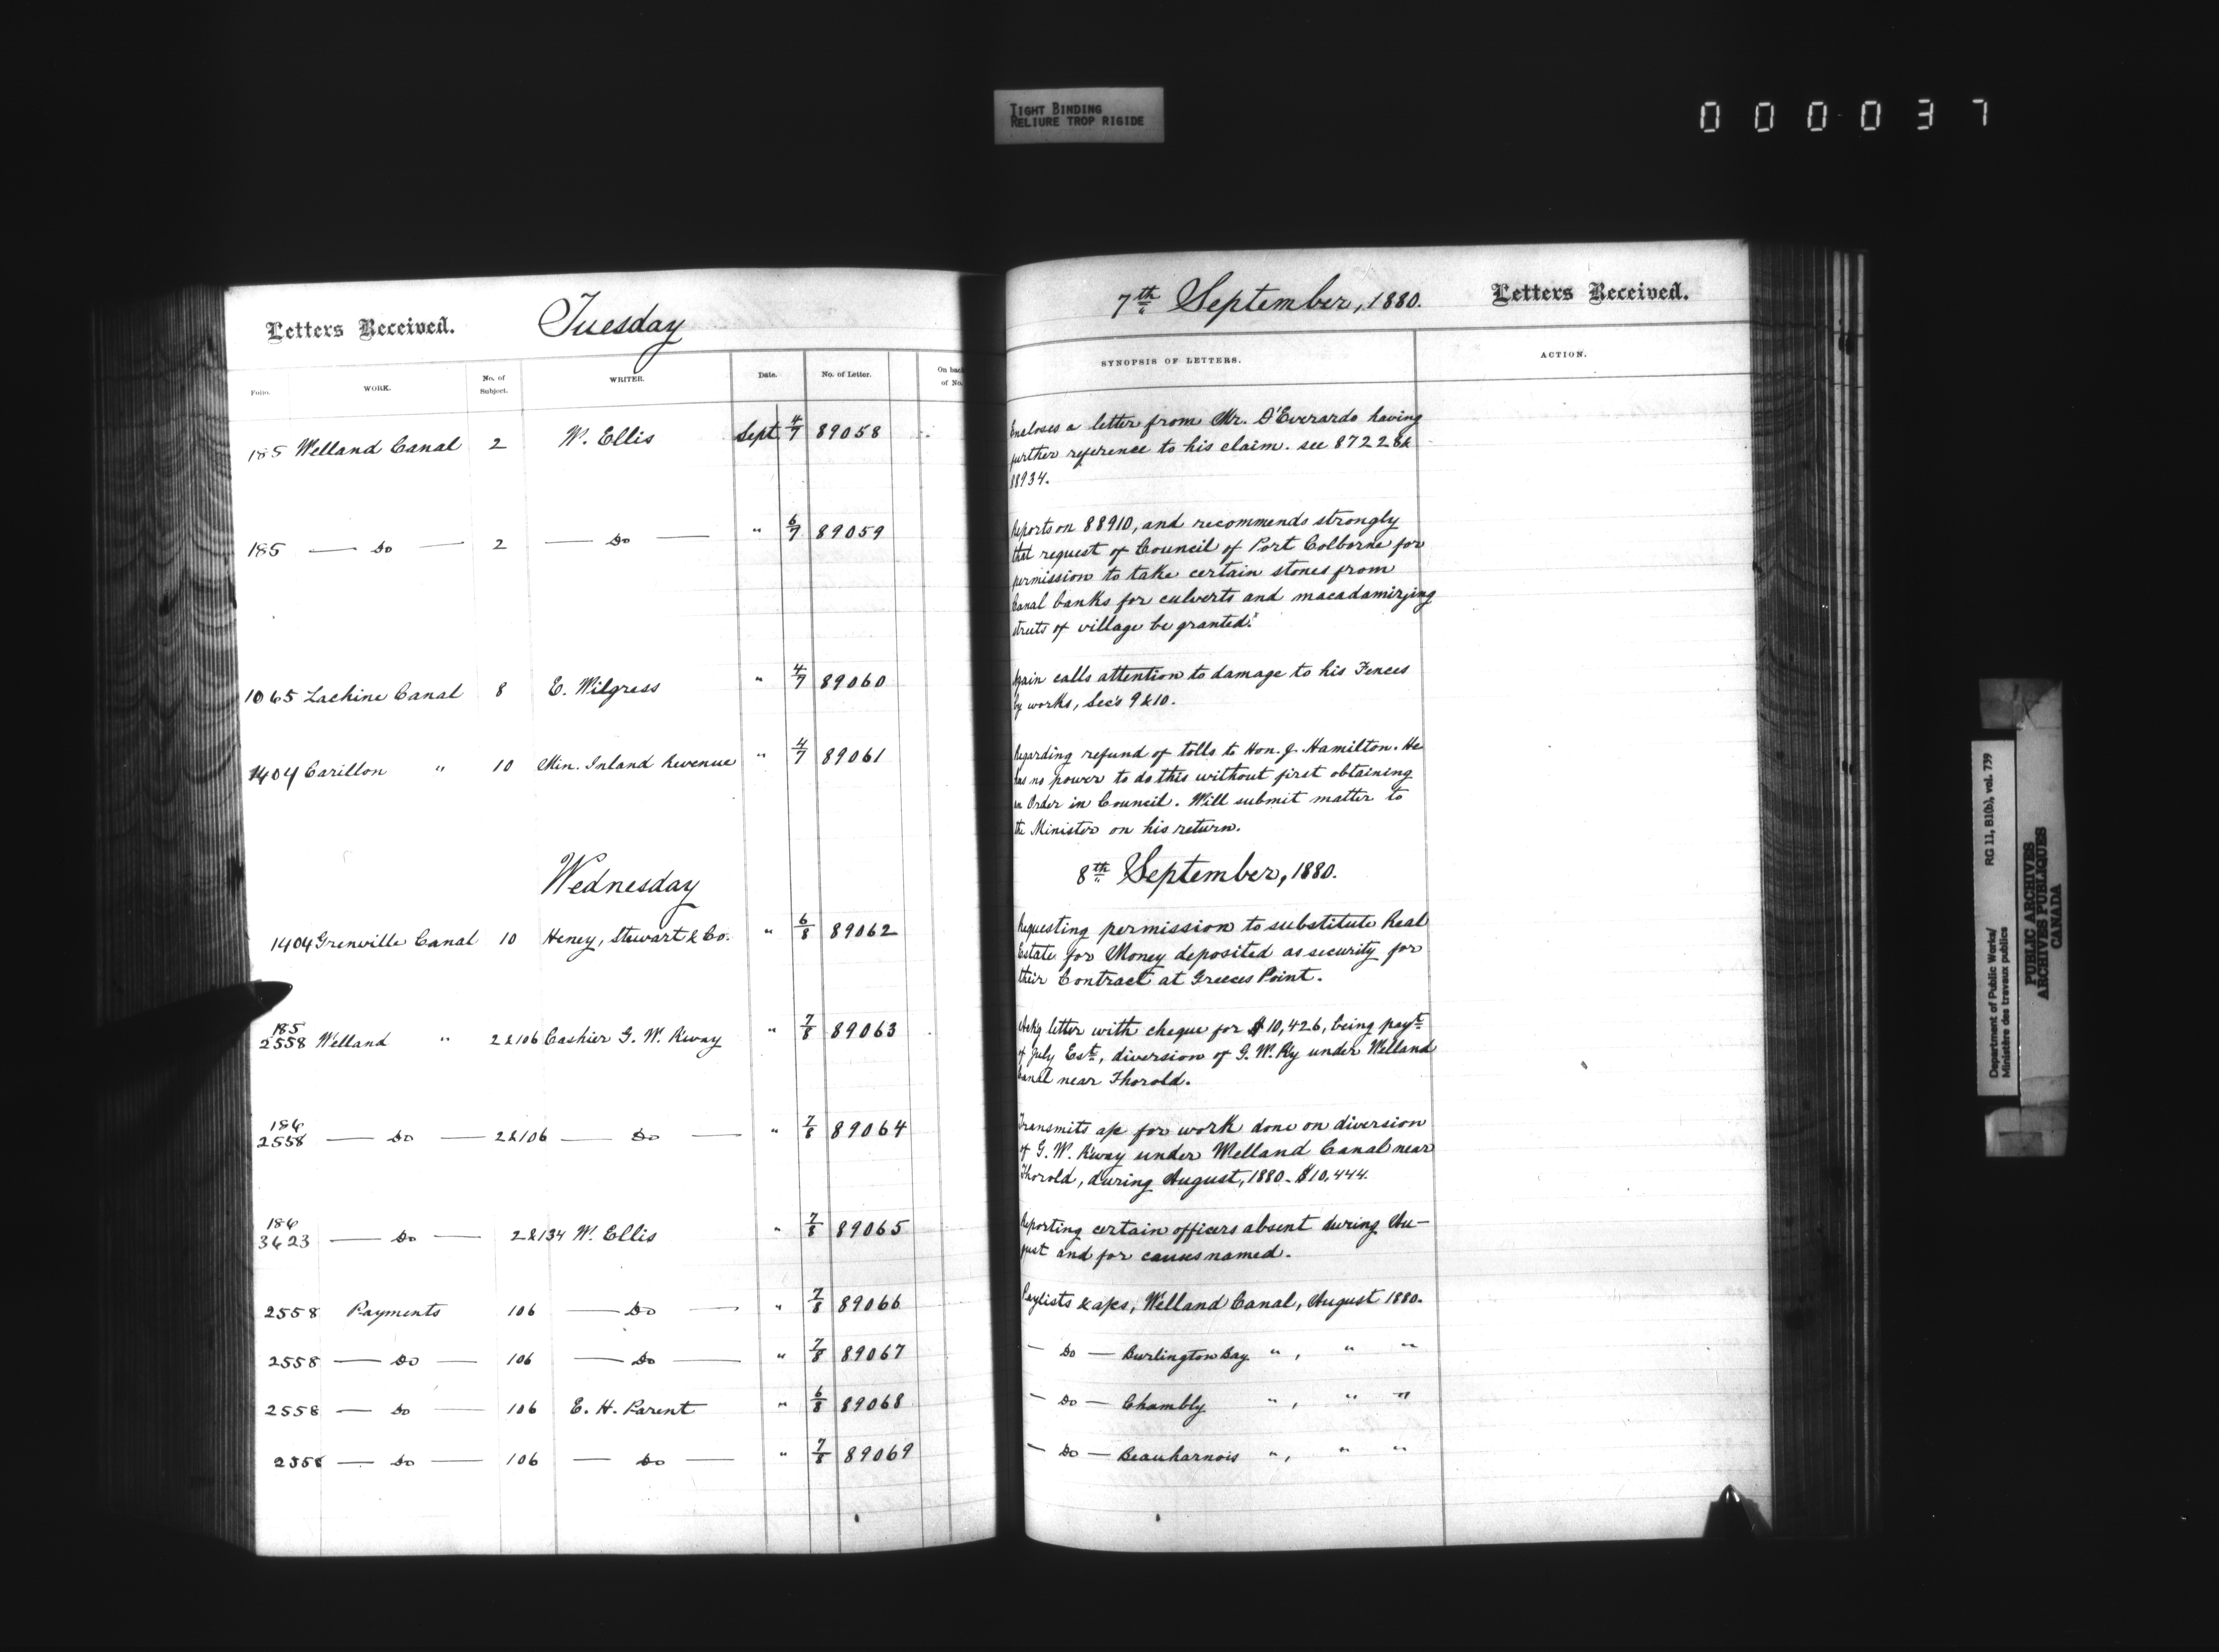 TIGHT BINDING
RELIURE TROP RIGIDE
000037
Letters Received. Tuesday
7th September, 1880. Letters Received.
Folio. WORK. No. of Subject. WRITER. Date. No. of Letter. On back of No.
SYNOPSIS OF LETTERS. ACTION.
185 Welland Canal 2 W. Ellis Sept 4/7 89058
Encloses a letter from Mr. D'Everardo having
further reference to his claim. see 87228 &
88934.
185 — Do — 2 — Do — " 6/7 89059
Reports on 88910, and recommends strongly
that request of Council of Port Colborne for
permission to take certain stones from
Canal banks for culverts and macadamizing
streets of village be granted.
1065 Lachine Canal 8 E. Wilgress " 4/7 89060
Again calls attention to damage to his Fences
by works, Sec's 9 & 10.
1404 Carillon " 10 Min. Inland Revenue " 4/7 89061
Regarding refund of tolls to Hon. J. Hamilton. He
has no power to do this without first obtaining
an Order in Council. Will submit matter to
the Minister on his return.
Wednesday
8th September, 1880.
1404 Grenville Canal 10 Heney, Stewart & Co. " 6/8 89062
Requesting permission to substitute Real
Estate for Money deposited as security for
their Contract at Greeces Point.
185
2558 Welland " 2 & 106 Cashier G. W. R'way " 7/8 89063
Ackg letter with cheque for $10,426, being payt
of July Est., diversion of G. W. Ry under Welland
Canal near Thorold.
186
2558 — Do — 2 & 106 — Do — " 7/8 89064
Transmits a/c for work done on diversion
of G. W. R'way under Welland Canal near
Thorold, during August, 1880 - $10,444.
186
3623 — Do — 2 & 134 W. Ellis " 7/8 89065
Reporting certain officers absent during Au-
gust and for causes named.
2558 Payments 106 — Do — " 7/8 89066
Paylists & a/cs, Welland Canal, August 1880.
2558 — Do — 106 — Do — " 7/8 89067
— Do — Burlington Bay " , " "
2558 — Do — 106 E. H. Parent " 6/8 89068
— Do — Chambly " , " "
2558 — Do — 106 — Do — " 7/8 89069
— Do — Beauharnois " , " "
Department of Public Works/ RG 11, B1(b), vol. 739
Ministère des travaux publics
PUBLIC ARCHIVES
ARCHIVES PUBLIQUES
CANADA